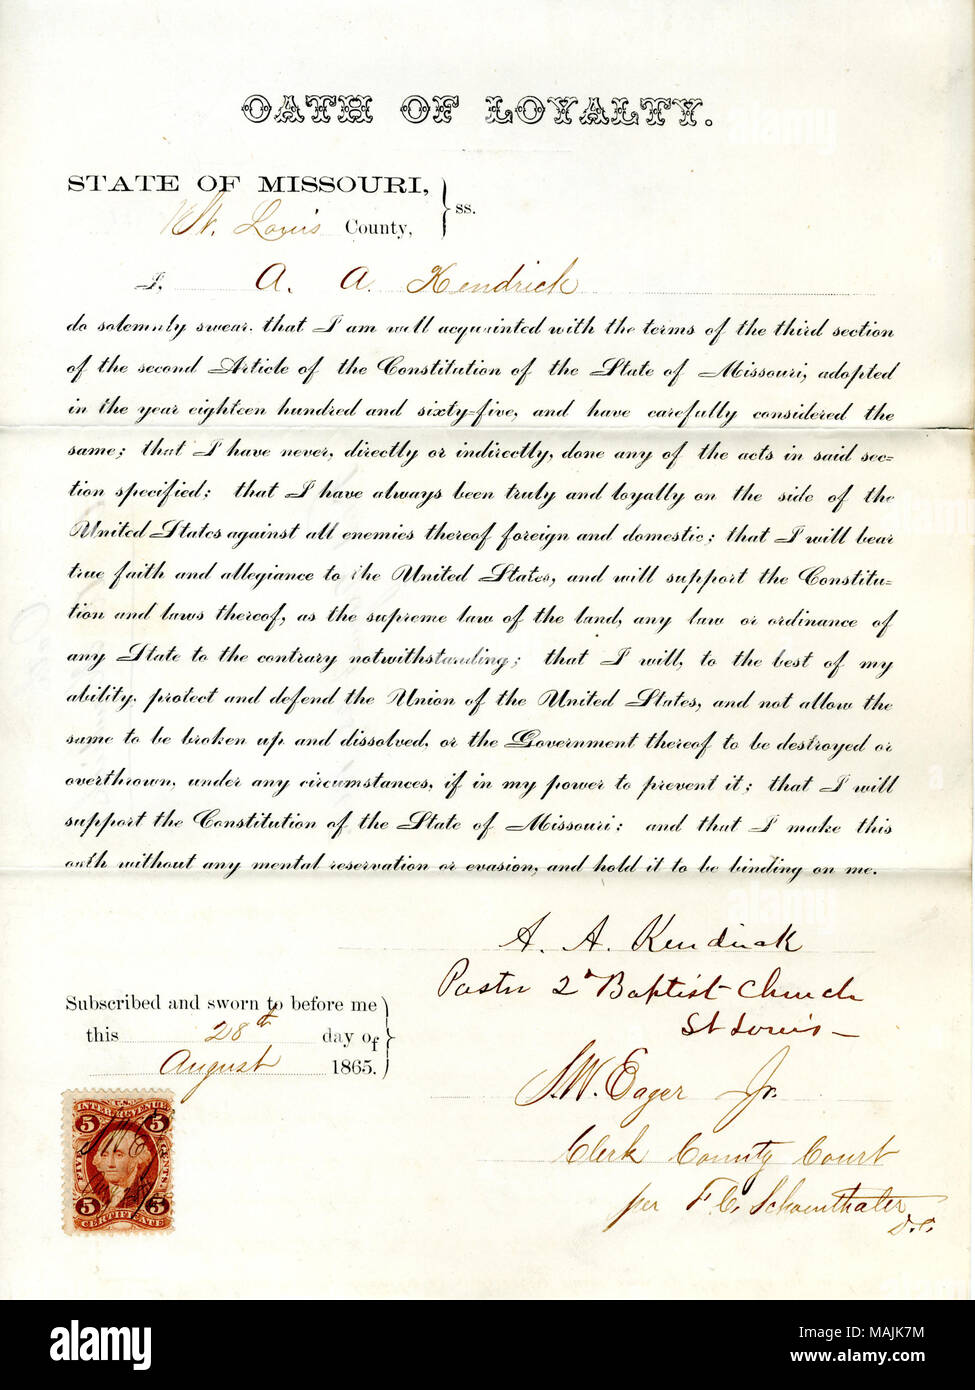 OATH OF LOYALTY.
STATE OF MISSOURI,
St. Louis County, ss.
I, A. A. Kendrick
do solemnly swear, that I am well acquainted with the terms of the third section
of the second Article of the Constitution of the State of Missouri, adopted
in the year eighteen hundred and sixty-five, and have carefully considered the
same; that I have never, directly or indirectly, done any of the acts in said sec-
tion specified; that I have always been truly and loyally on the side of the
United States against all enemies thereof foreign and domestic; that I will bear
true faith and allegiance to the United States, and will support the Constitu-
tion and laws thereof, as the supreme law of the land, any law or ordinance of
any State to the contrary notwithstanding; that I will, to the best of my
ability, protect and defend the Union of the United States, and not allow the
same to be broken up and dissolved, or the Government thereof to be destroyed or
overthrown, under any circumstances, if in my power to prevent it; that I will
support the Constitution of the State of Missouri; and that I make this
oath without any mental reservation or evasion, and hold it to be binding on me.
A. A. Kendrick
Pastor 2d Baptist Church
St Louis
Subscribed and sworn to before me
this 28th day of
August 1865.
S.W. Eager Jr.
Clerk County Court
per F. C. Schoenthaler
D.C.
U.S.
INTER. REVENUE
5 5
FIVE CENTS
5 5
CERTIFICATE
alamy
alamy
a
alamy
Image ID: MAJK7M
www.alamy.com